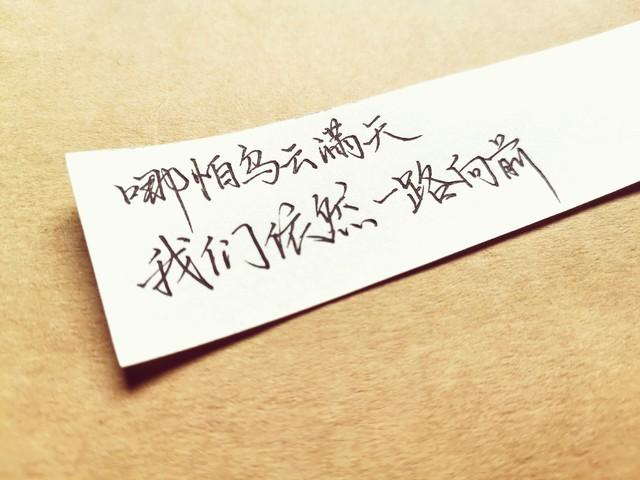 哪怕乌云满天
我们依然一路向前